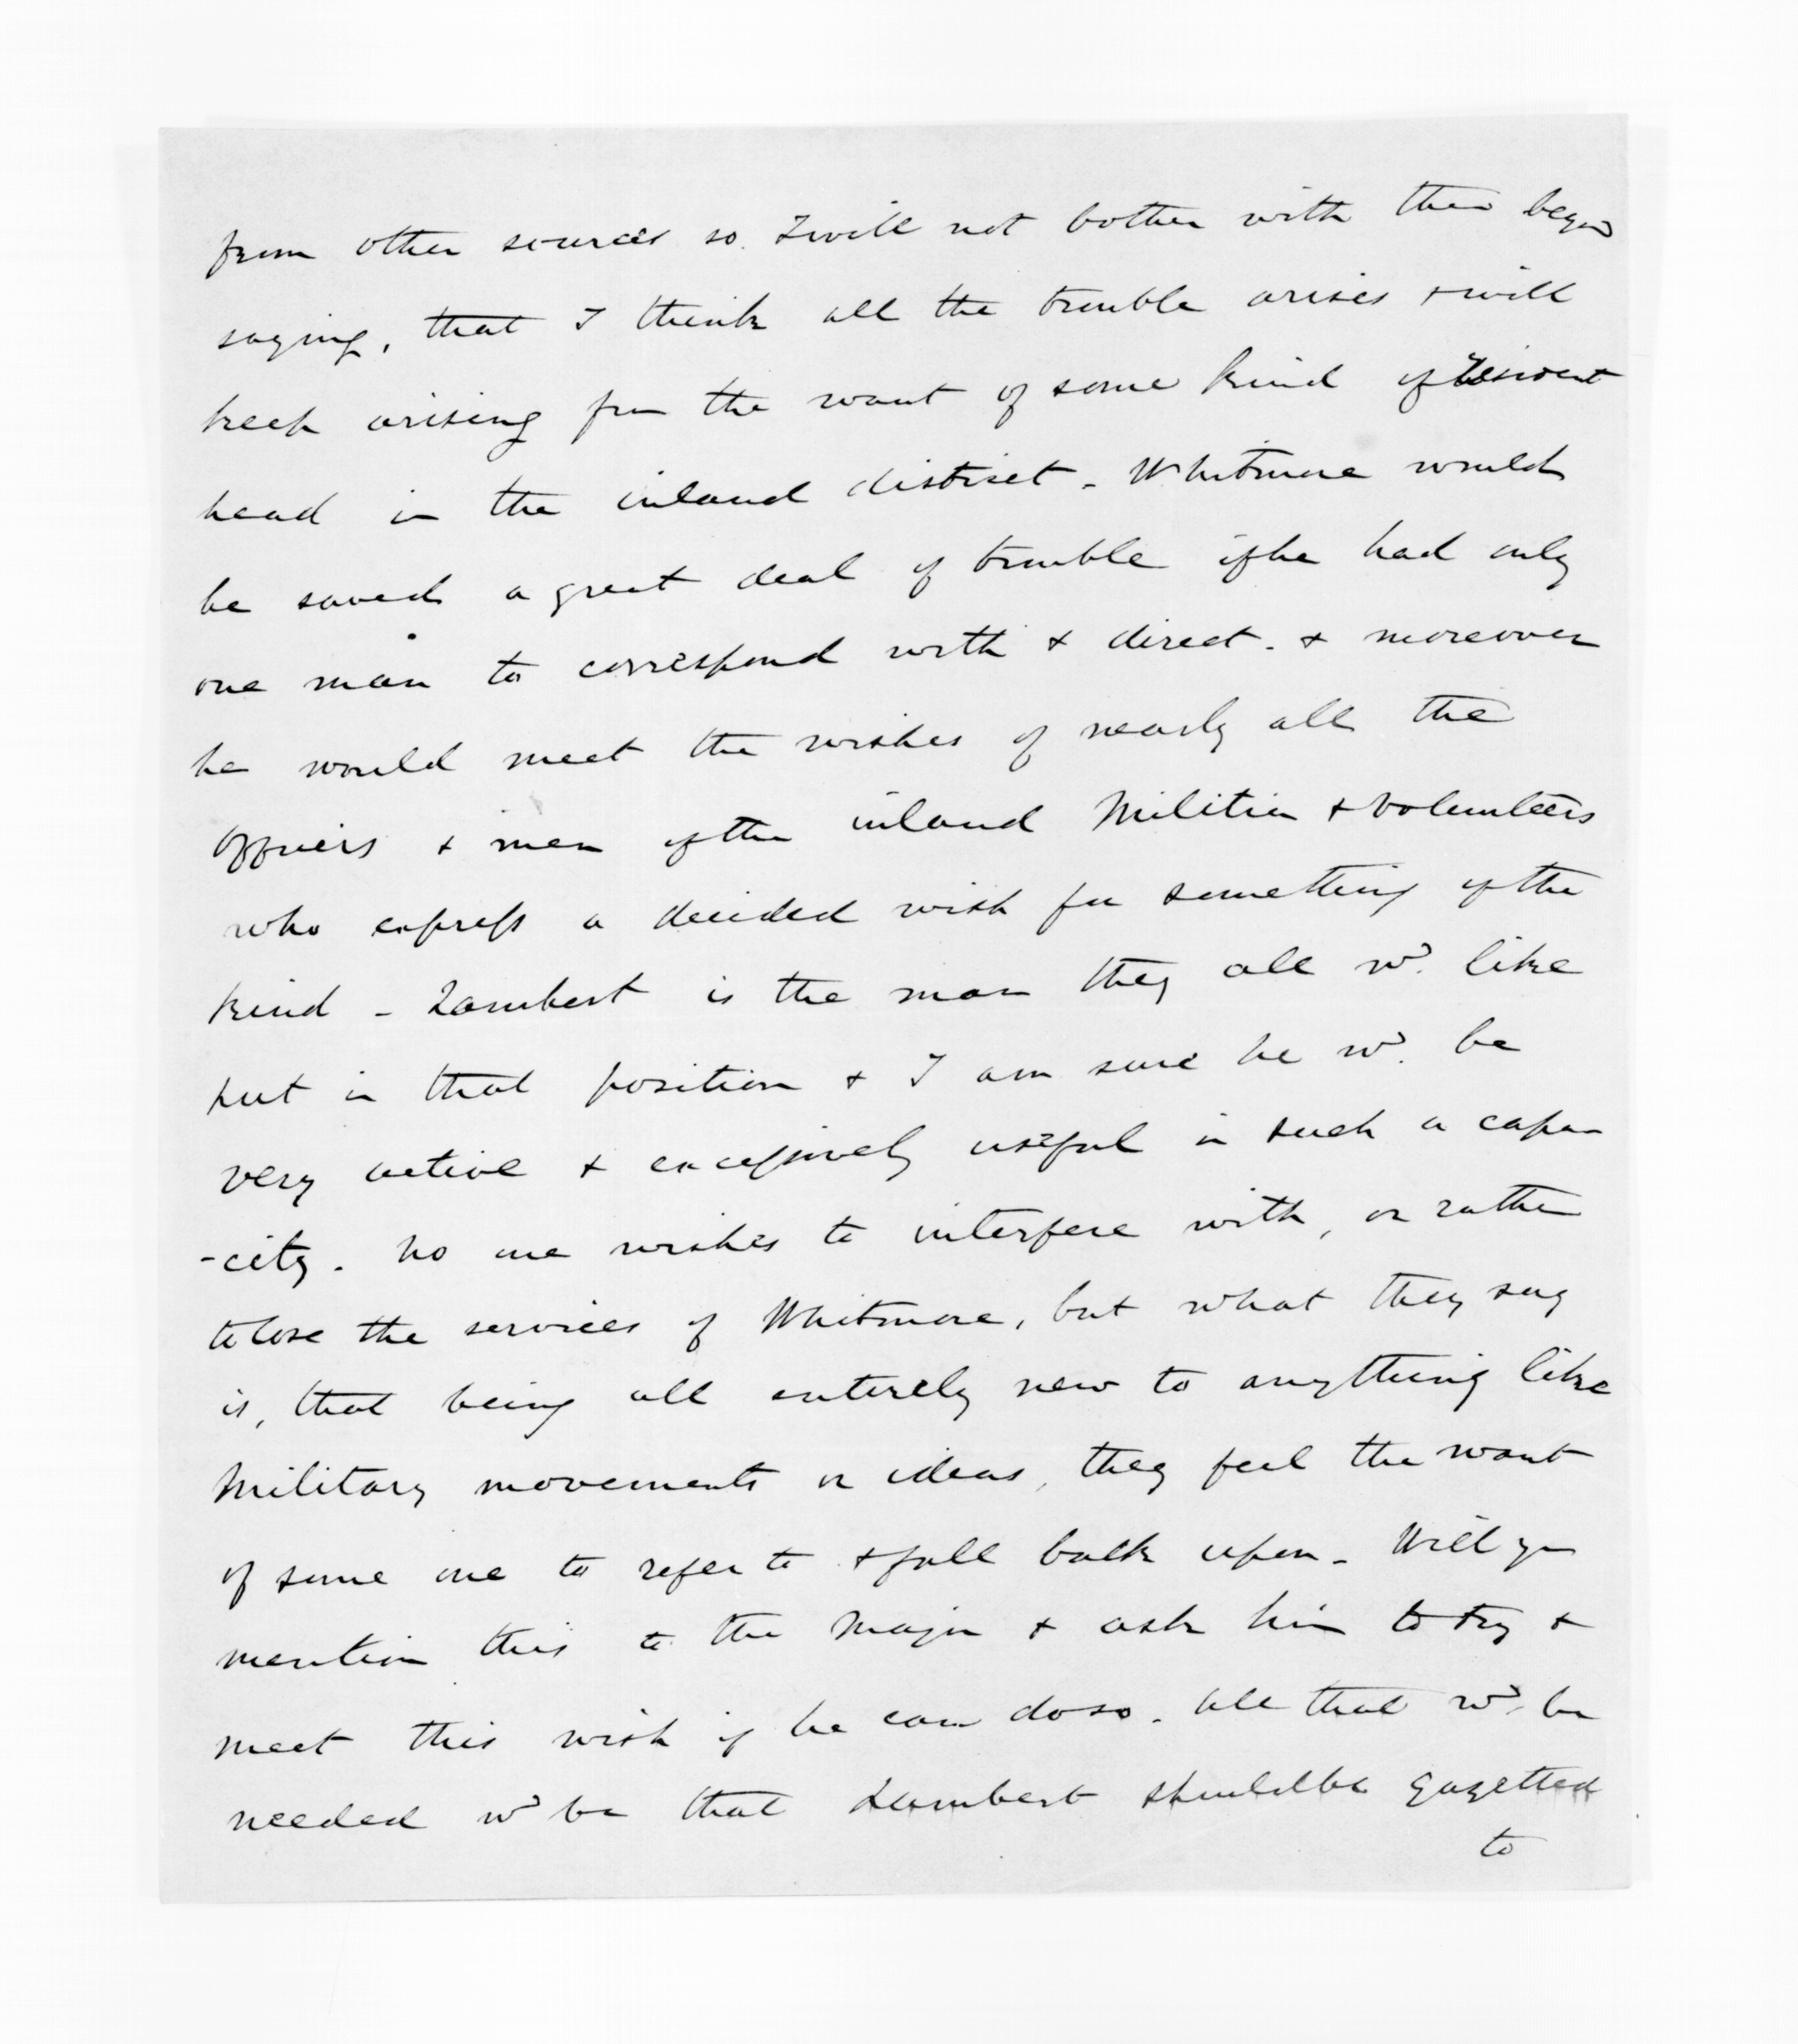 from other sources so I will not bother with them beyond
saying, that I think all the trouble arises & will
keep arising from the want of some kind of resident
head in the inland district - Whitmore would
be saved a great deal of trouble if he had only
one man to correspond with & direct. & moreover
he would meet the wishes of nearly all the
Officers & men of the inland Militia & Volunteers
who express a decided wish for something of the
kind - Lambert is the man they all wd. like
put in that position & I am sure he wd. be
very active & excessively useful in such a capa
-city. No one wishes to interfere with, or rather
to lose the services of Whitmore, but what they say
is, that being all entirely new to anything like
Military movements or ideas, they feel the want
of some one to refer to & fall back upon - Will you
mention this to the Major & ask him to try &
meet this wish if he can do so. All that wd. be
needed wd be that Lambert should be gazetted
to